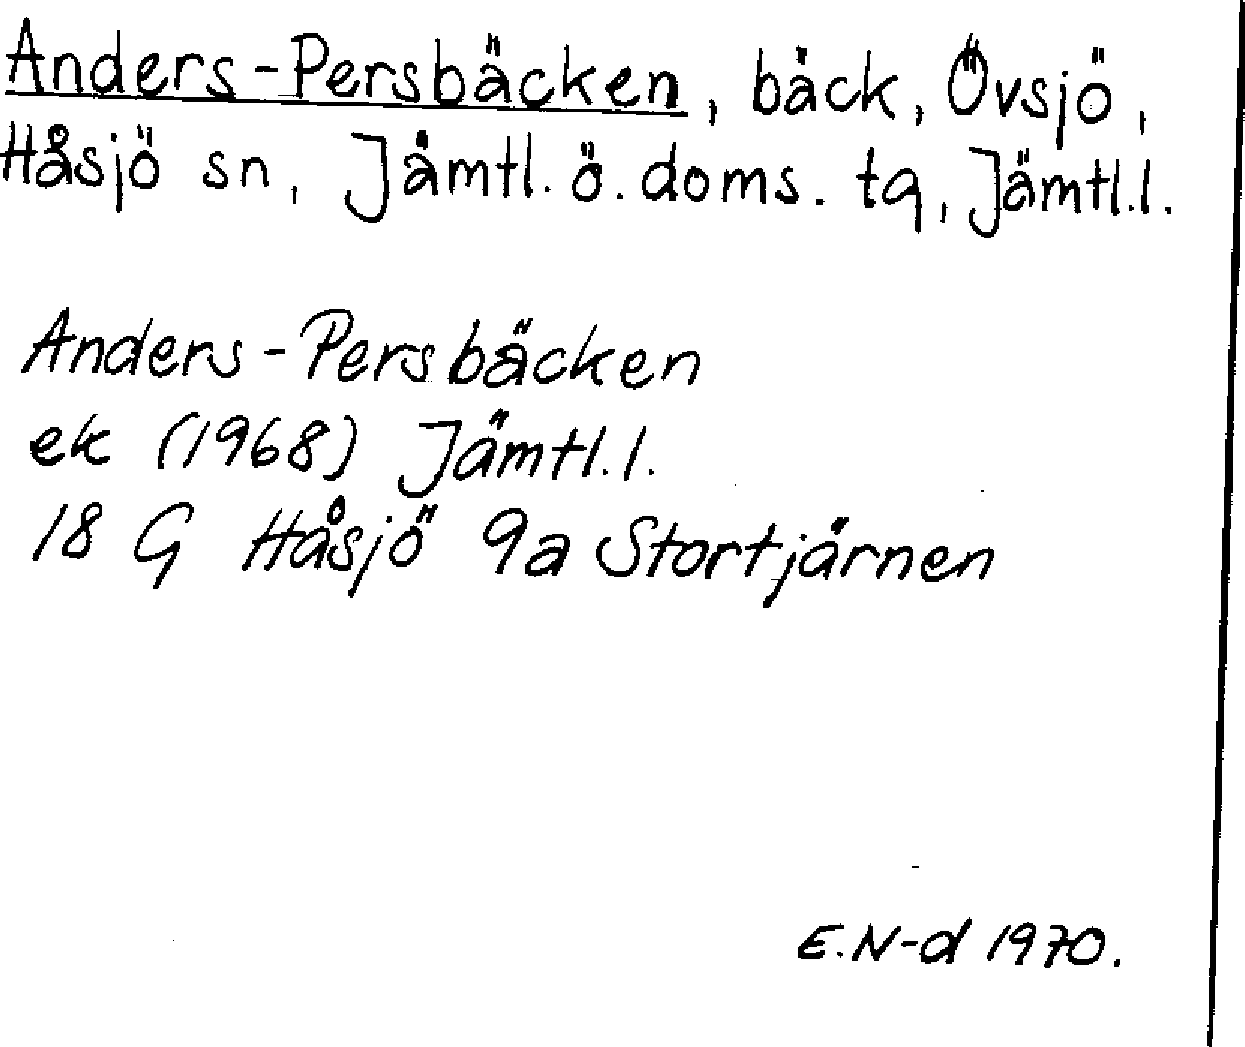 Anders-Persbäcken, bäck, Övsjö,
Håsjö sn, Jämtl. ö. doms. tg, Jämtl.l.
Anders-Persbäcken
ek (1968) Jämtl.l.
18 G Håsjö 9a Stortjärnen
E.N-d 1970.